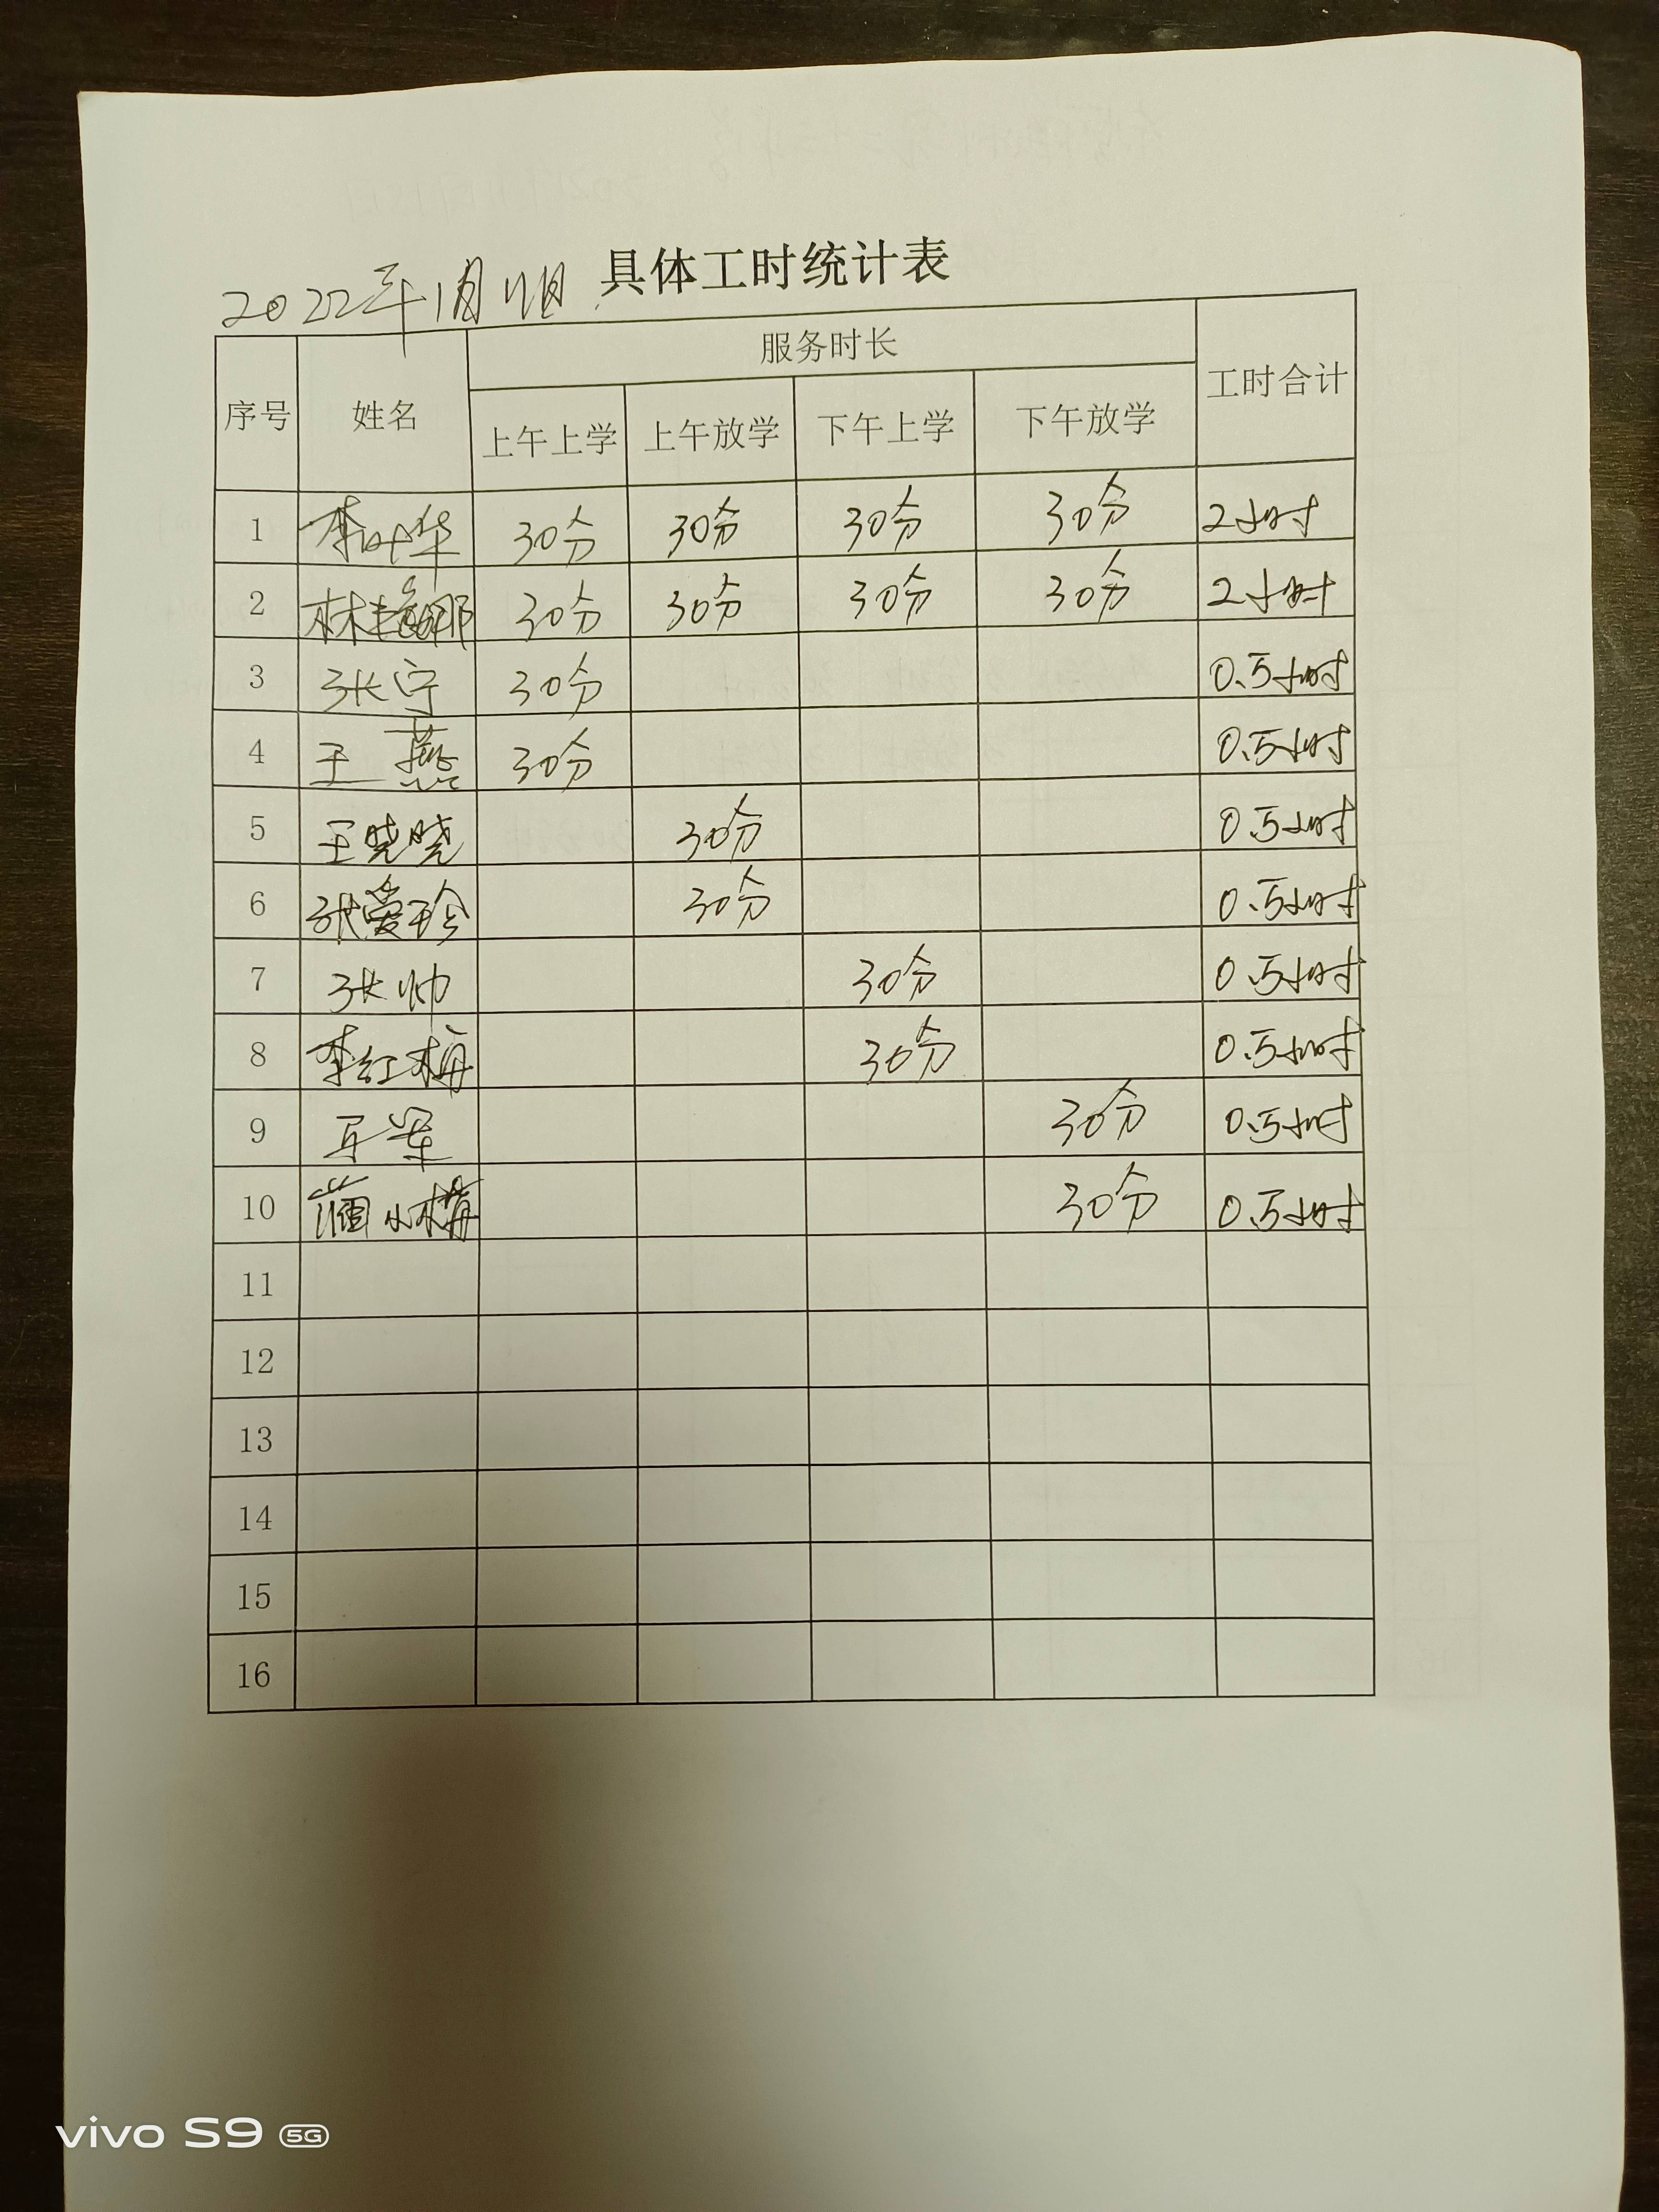 具体工时统计表
2022年1月11日
序号 姓名 服务时长 工时合计
上午上学 上午放学 下午上学 下午放学
1 李叶华 30分 30分 30分 30分 2小时
2 林艳娜 30分 30分 30分 30分 2小时
3 张宁 30分 0.5小时
4 王燕 30分 0.5小时
5 王晓晓 30分 0.5小时
6 张爱玲 30分 0.5小时
7 张帅 30分 0.5小时
8 李红梅 30分 0.5小时
9 30分 0.5小时
10 小梅 30分 0.5小时
11
12
13
14
15
16
vivo S9 5G